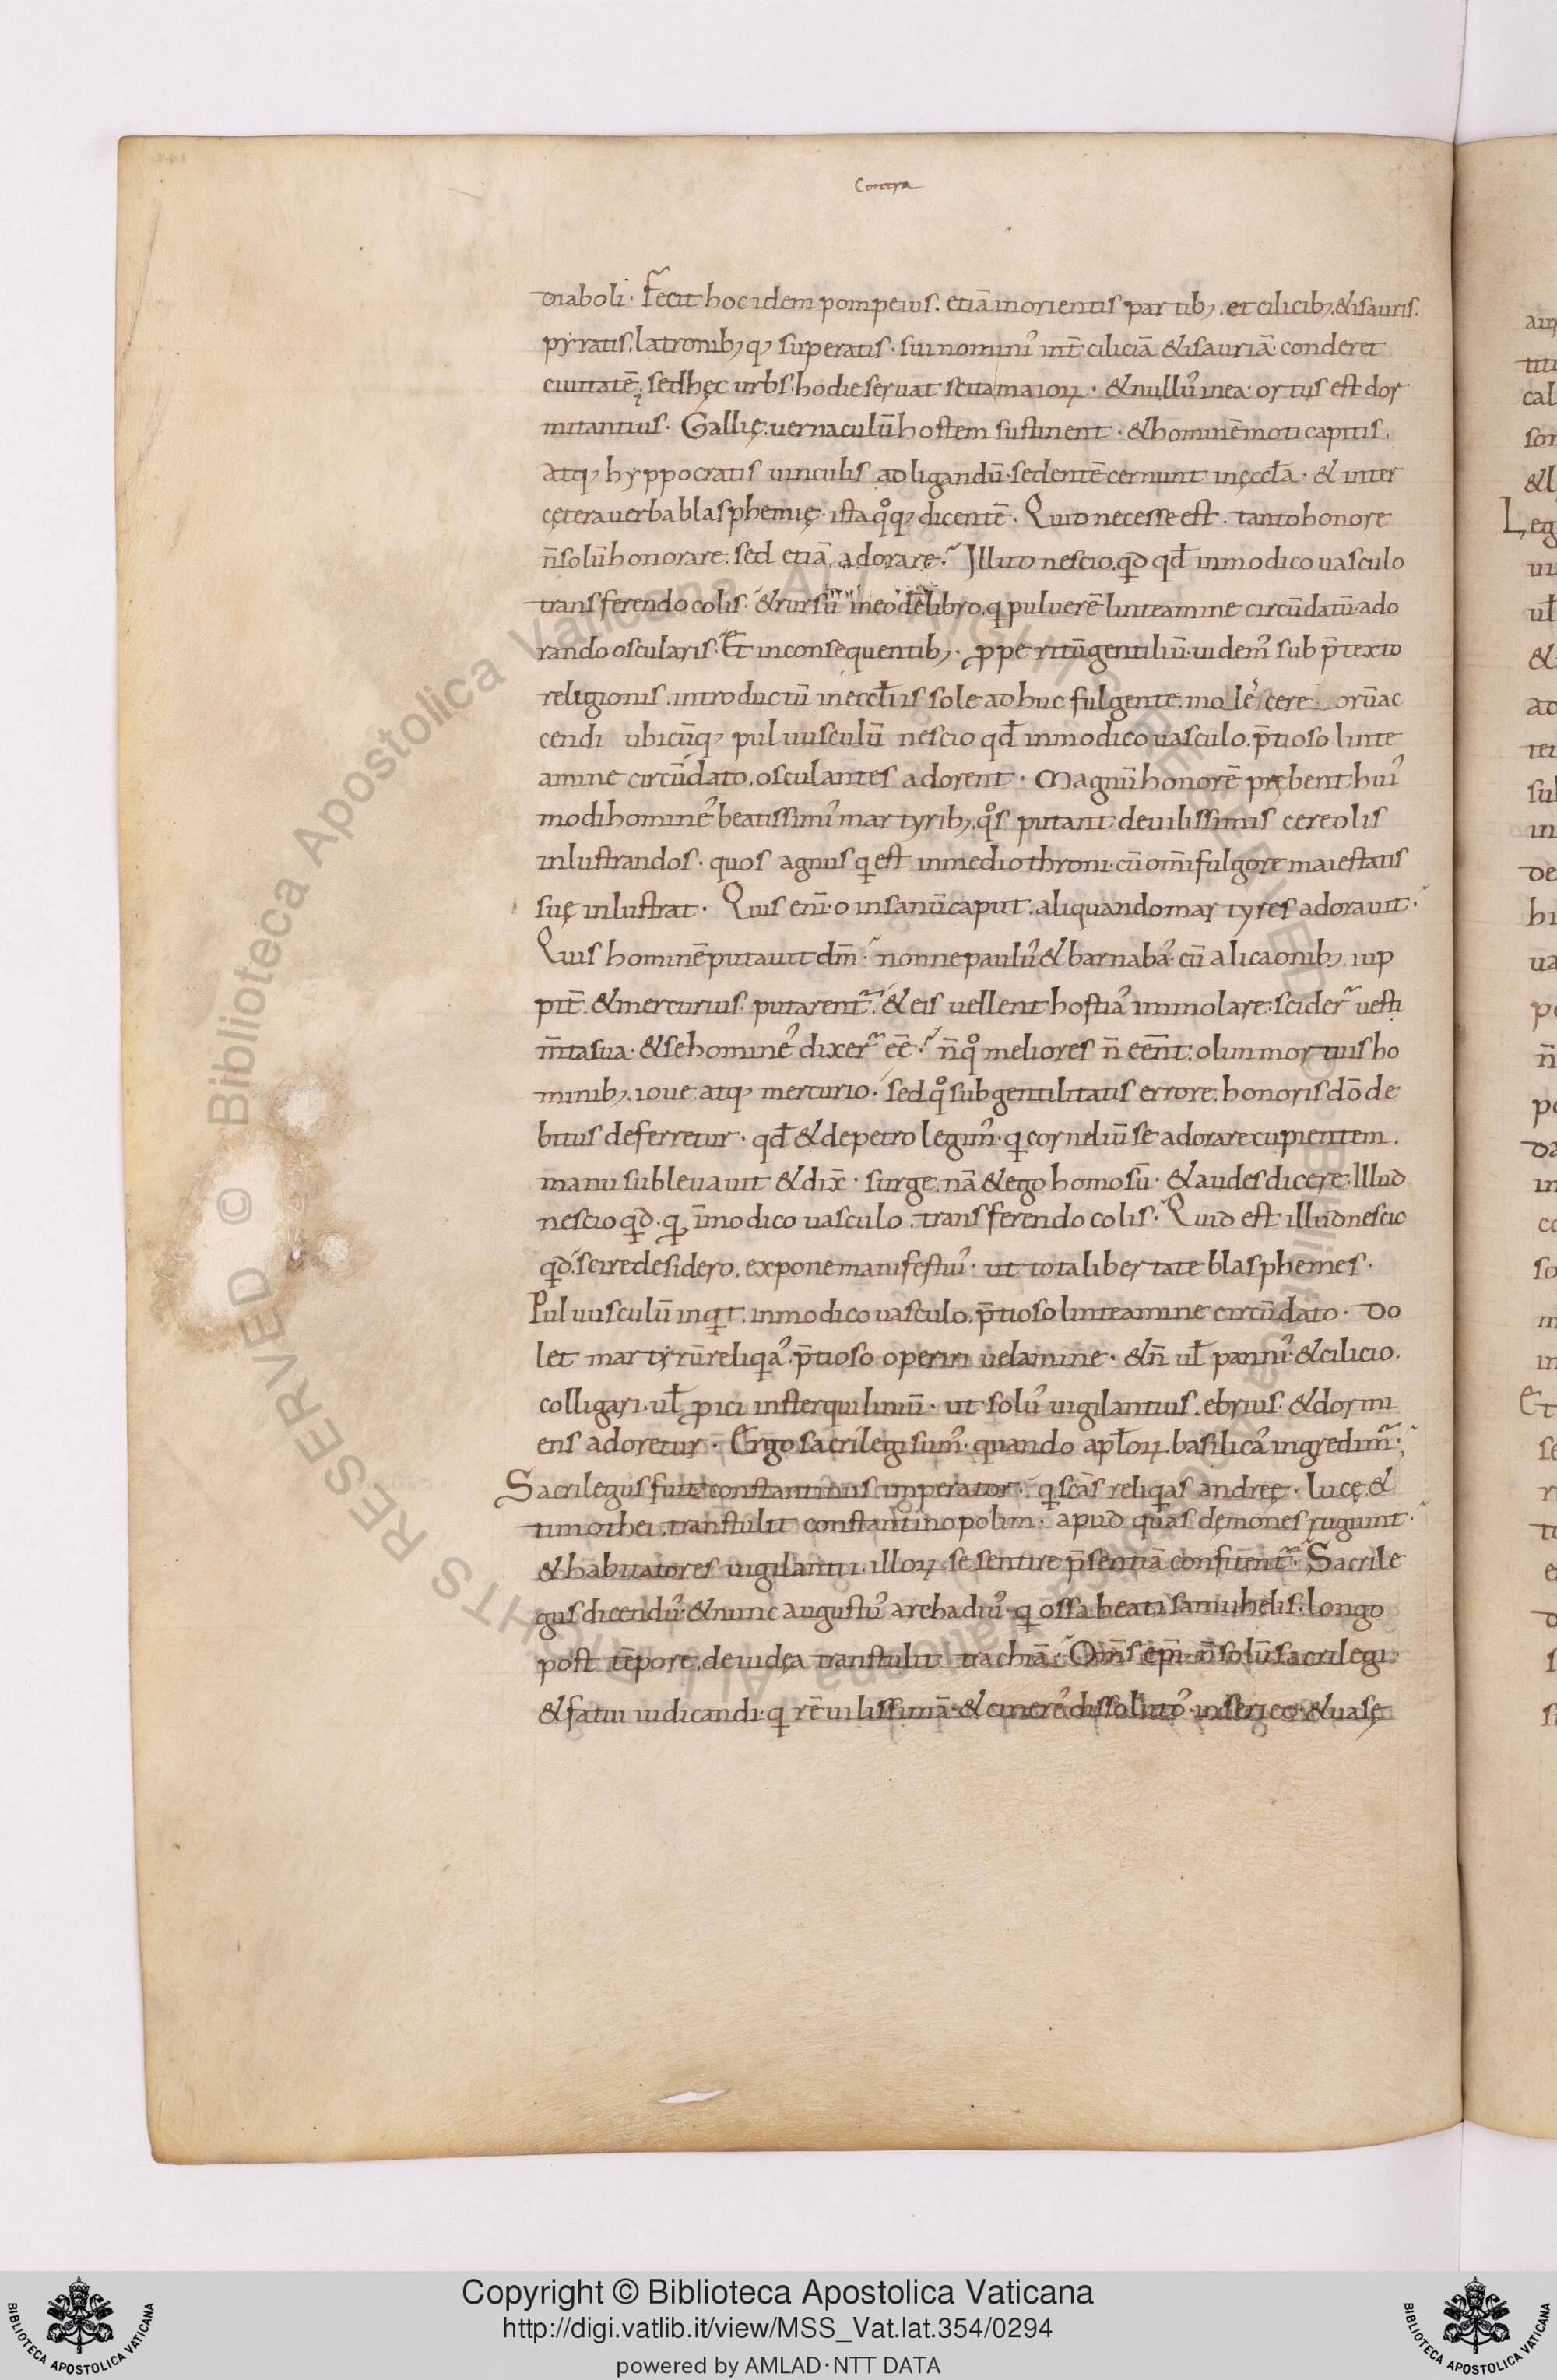 Contra
diaboli. Fecit hoc idem pompeius. etiā in orientis partib; et cilicib; & isauris.
pyratis. latronib; q; superatis. sui nominis int̄ ciliciā & isauriā. conderet
ciuitatē; sed hęc urbs. hodie seruat scita maioꝝ. & nullus in ea. ortus est dor
mitantius. Gallię. uernaculū hostem sustinent. & hominē moti capitis.
atq; hyppocratis uinculis adligandū. sedentē cernunt in ęccła. & inter
cętera uerba blasphemię. ista qͦq; dicentē. Quid necesse est. tanto honore
n̄ solū honorare. sed etiā adorare. Illud nescio. qd qđ in modico uasculo
transferendo colis. & rursū in eodē libro. q puluerē linteamine circūdatū ado
rando oscularis. Et in consequentib;. ꝓpe ritū gentiliū uidem' sub p̄texto
religionis. introductū in eccłiis sole adhuc fulgente. moles cere orū ac
cendi ubicūq; puluusculū nescio qđ in modico uasculo. p̄tioso linte
amine circūdato. osculantes adorent. Magnū honorē prębent hui'
modi homine' beatissimi' martyrib;. qͦs putant de uilissimis cereolis
inlustrandos. quos agnus q est in medio throni. cū om̄i fulgore maiestatis
suę inlustrat. Quis eni. o insanū caput. aliquando martyres adorauit.
Quis hominē putauit dm̄. nonne paulu' & barnaba'. cū a licaonib;. iup
pit̄. & mercurius. putarent̄. & eis uellent hostia' immolare. scider̄ uesti
m̄ta sua. & se homine' dixer̄ eē. n̄ qͦ meliores n̄ eēnt. olim mortuis ho
minib;. ioue. atq; mercurio. sed qͦ sub gentilitatis errore. honoris dō de
bitus deferretur. qđ & de petro legim'. q corneliū se adorare cupientem.
manu subleuauit & dix̄. surge. nā & ego homo sū. & audes dicere. Illud
nescio qd. q īmodico uasculo. transferendo colis. Quid est illud nescio
qd. scire desidero. expone manifestiu'. ut tota libertate blasphemes.
Puluusculū inqt. in modico uasculo. p̄tioso linteamine circūdato. Do
let martyrū reliqa'. p̄tioso operiri uelamine. & n̄ uł panni'. & cilicio.
colligari. uł ꝓici in sterquiliniū. ut solu' uigilantius. ebrius. & dormi
ens adoretur. Ergo sacrilegi sum'. quando apłoꝝ. basilica' ingredim̄.
Sacrilegus fuit constantinus imperator. q scās reliqas andreę. lucę. &
timothei. transtulit constantinopolim. apud quas dęmones rugiunt.
& habitatores uigilantii. illoꝝ se sentire p̄sentiā confitent̄. Sacrile
gus dicendu'. & nunc augustu' archadiu'. q ossa beati samuhelis. longo
post tēpore. de iudęa transtulit trachiā. Om̄s epi. n̄ solū sacrilegi.
& fatui iudicandi. q rē uilissimā. & cinere' dissoluto'. in serico. & uase
Copyright © Biblioteca Apostolica Vaticana
http://digi.vatlib.it/view/MSS_Vat.lat.354/0294
powered by AMLAD·NTT DATA